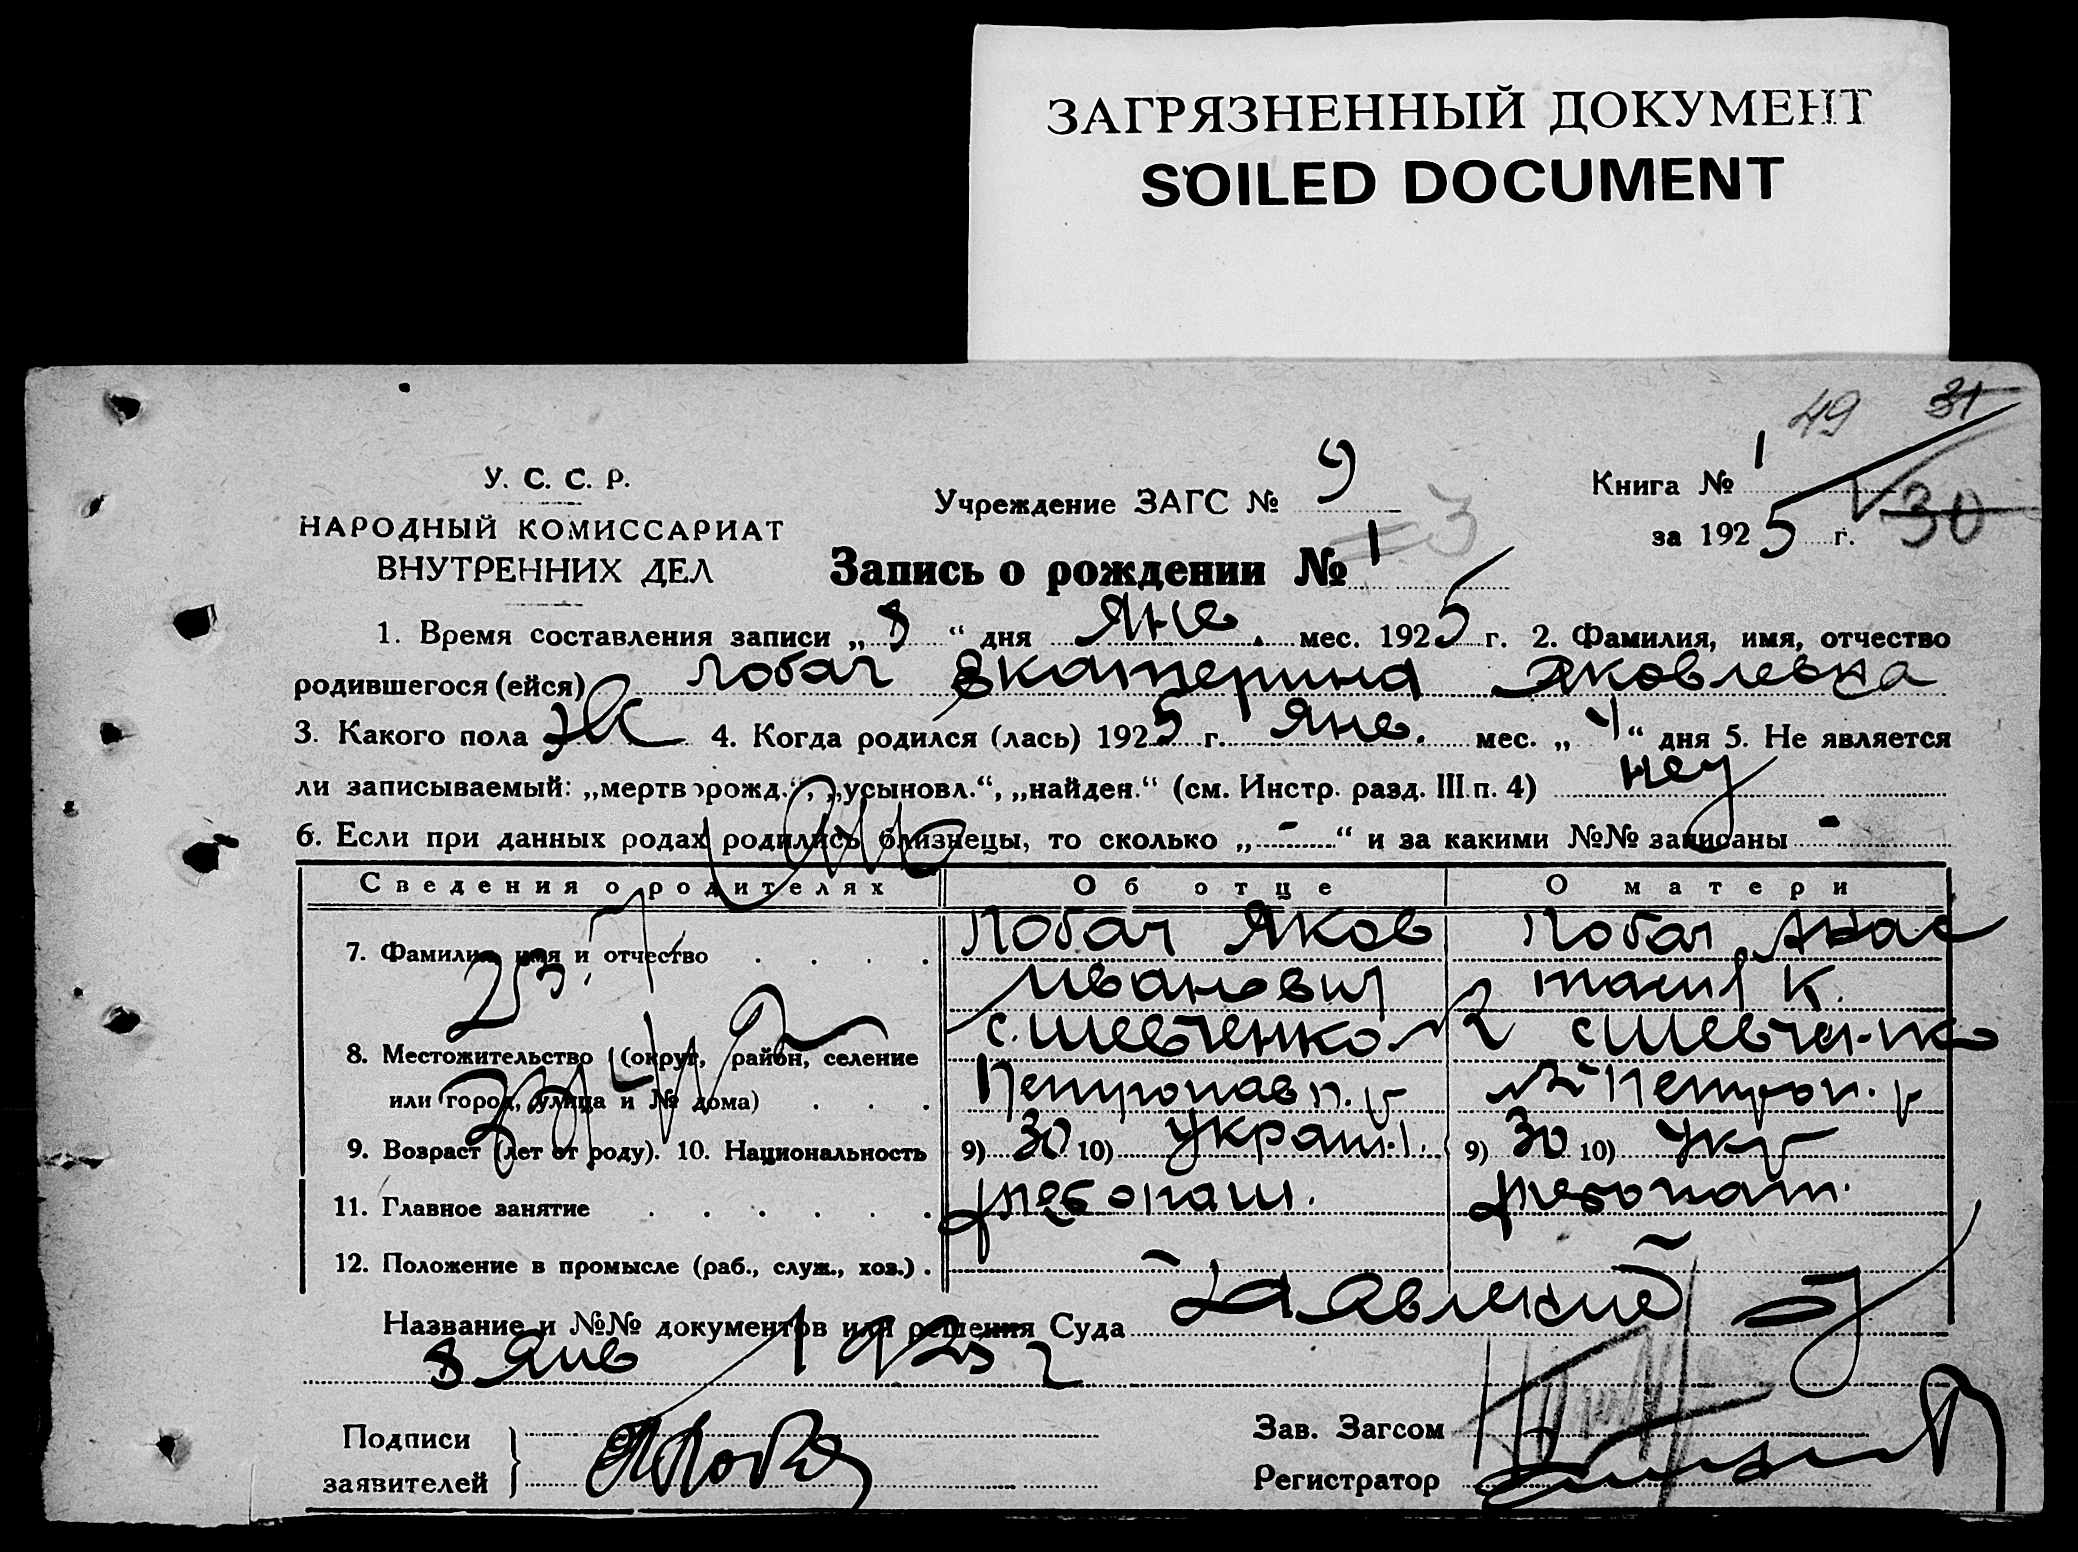 ЗАГРЯЗНЕННЫЙ ДОКУМЕНТ
SOILED DOCUMENT
49 31
У. С. С. Р.
НАРОДНЫЙ КОМИССАРИАТ
ВНУТРЕННИХ ДЕЛ
Учреждение ЗАГС № 9
Книга № 1
за 1925 г. 30
Запись о рождении № 1 = 3
1. Время составления записи „ 8 “ дня Янв. мес. 1925 г. 2. Фамилия, имя, отчество
родившегося (ейся) Лобач Екатерина Яковлевна
3. Какого пола Ж 4. Когда родился (лась) 1925 г. Янв. мес. „ “ дня 5. Не является
ли записываемый: „мертворожд.“, „усыновл.“, „найден.“ (см. Инстр. разд. III п. 4) нет
6. Если при данных родах родились близнецы, то сколько „ - “ и за какими №№ записаны -
Сведения о родителях Об отце О матери
7. Фамилия, имя и отчество Лобач Яков Лобач Анас
Иванович тасия К.
8. Местожительство (округ, район, селение с. Шевченко с Шевченко
или город, улица и № дома) Петропав р. Петроп. р
9. Возраст (лет от роду). 10. Национальность 9) 30 10) Украин. 9) 30 10) Укр
11. Главное занятие хлебопаш. хлебопаш.
12. Положение в промысле (раб., служ., хоз.) . - -
Название и №№ документов или решения Суда
8 Янв 1925 г
Подписи
заявителей
Зав. Загсом
Регистратор